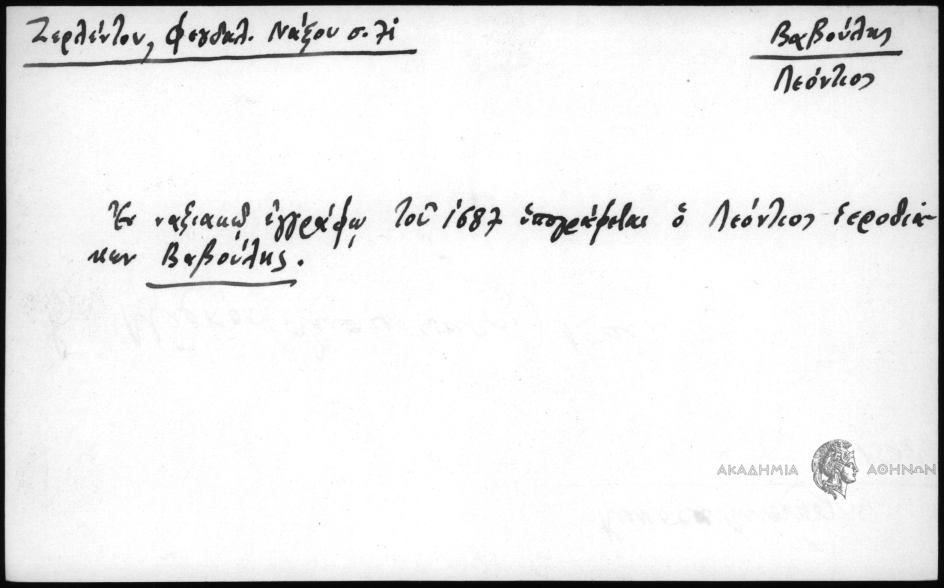 Ζερλέντου, Φευδαλ. Νάξου σ.
Βαβούλης
Λεόντιος
Ἐν ναξιακῷ ἐγγράφῳ τοῦ 1687 ὑπογράφεται ὁ Λεόντιος ἱεροδιά-
κων Βαβούλης.
ΑΚΑΔΗΜΙΑ ΑΘΗΝΩΝ